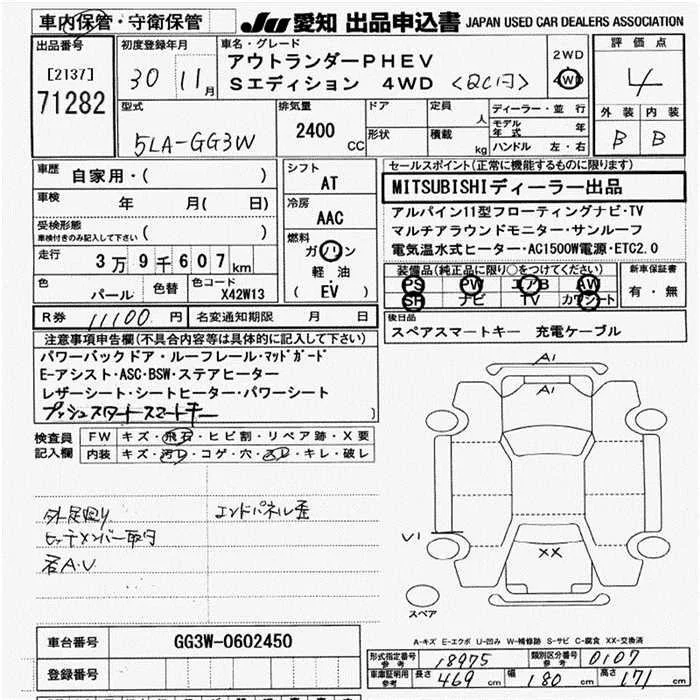 車内保管・守衛保管
JU 愛知 出品申込書 JAPAN USED CAR DEALERS ASSOCIATION
出品番号
[2137]
71282
初度登録年月
30 11月
車名・グレード
アウトランダーPHEV
Sエディション 4WD
2WD
4WD
評価点
4
外装 内装
B B
型式
5LA-GG3W
排気量
2400
CC
ドア
形状
定員
人
積載
kg
ディーラー・並行
モデル年式 年
ハンドル 左・右
車歴
自家用・( )
車検
年 月( 日)
受検形態
車検付きのみ記入して下さい ( )
走行
3万9千607km
色
パール
色替
色コード
X42W13
シフト
AT
冷房
AAC
燃料
ガソリン
軽油
( EV )
セールスポイント(正常に機能するものに限ります)
MITSUBISHIディーラー出品
アルパイン11型フローティングナビ・TV
マルチアラウンドモニター・サンルーフ
電気温水式ヒーター・AC1500W電源・ETC2.0
装備品(純正品に限り○をつけてください)
PS PW エアB AW
SR ナビ TV カワシート
新車保証書
有・無
R券
11100 円
名変通知期限 月 日
後日品
スペアスマートキー 充電ケーブル
注意事項申告欄(不具合内容等は具体的に記入して下さい)
パワーバックドア・ルーフレール・マッドガード
E-アシスト・ASC・BSW・ステアヒーター
レザーシート・シートヒーター・パワーシート
プッシュスタートスマートキー
)
検査員
記入欄
FW キズ・飛石・ヒビ割・リペア跡・X要
内装 キズ・汚レ・コゲ・穴・スレ・キレ・破レ
外足廻り
ヒッチメンバー取付
右A.V
エンドパネル歪
A1
A1
V1
XX
スペア
A-キズ E-エクボ U-凹み W-補修跡 S-サビ C-腐食 XX-交換済
車台番号
GG3W-0602450
登録番号
形式指定番号
参考
18975
類別区分番号
参考
0107
車庫証明用
参考
長さ 469 cm
幅 180 cm
高さ 171 cm